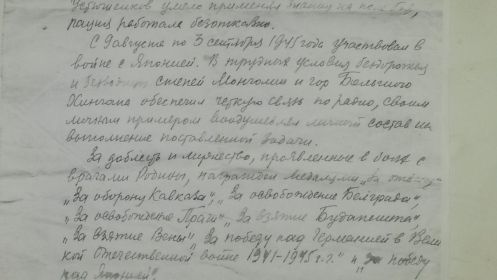 умело применял знания на поле боя,
рация работала безотказно.
С 9 августа по 3 сентября 1945 года участвовал в
войне с Японией. В трудных условиях бездорожья
и безводных степей Монголии и гор Большого
Хингана обеспечил четкую связь по радио, своим
личным примером воодушевлял личный состав на
выполнение поставленной задачи.
За доблесть и мужество, проявленные в боях с
врагами Родины, награжден медалями „За отвагу"
„За оборону Кавказа", „За освобождение Белграда",
„За освобождение Праги", „За взятие Будапешта"
„За взятие Вены", „За победу над Германией в Вели
кой Отечественной войне 1941-1945 г.г." и „За победу
над Японией".